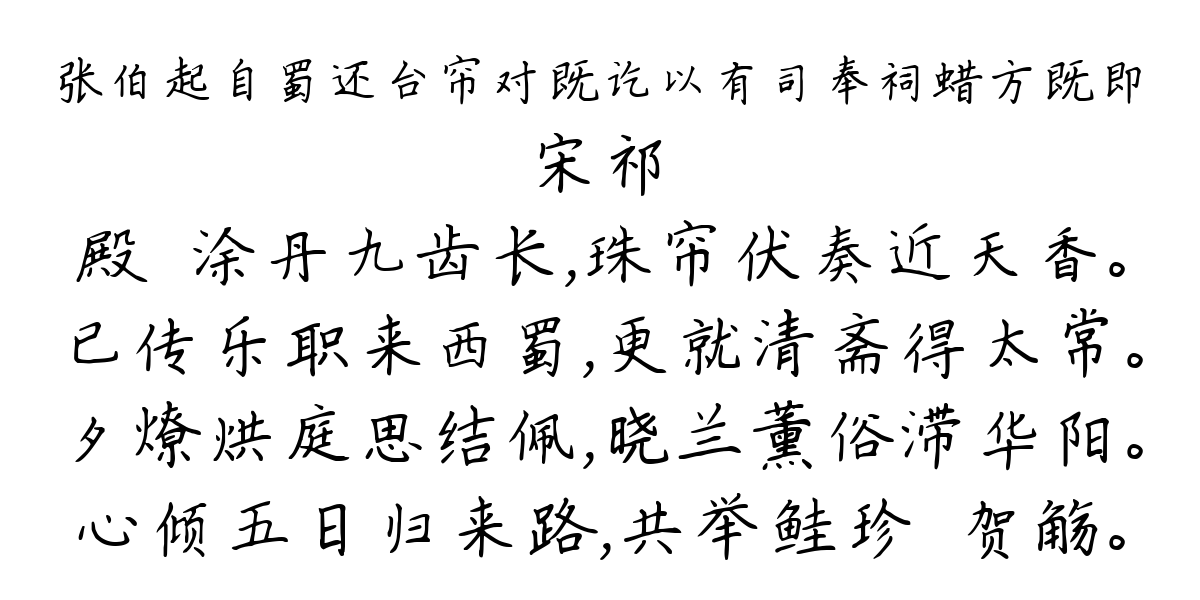 张伯起自蜀还台帘对既讫以有司奉祠蜡方既即
宋祁
殿 涂丹九齿长,珠帘伏奏近天香。
已传乐职来西蜀,更就清斋得太常。
夕燎烘庭思结佩,晓兰薰俗滞华阳。
心倾五日归来路,共举鲑珍 贺觞。